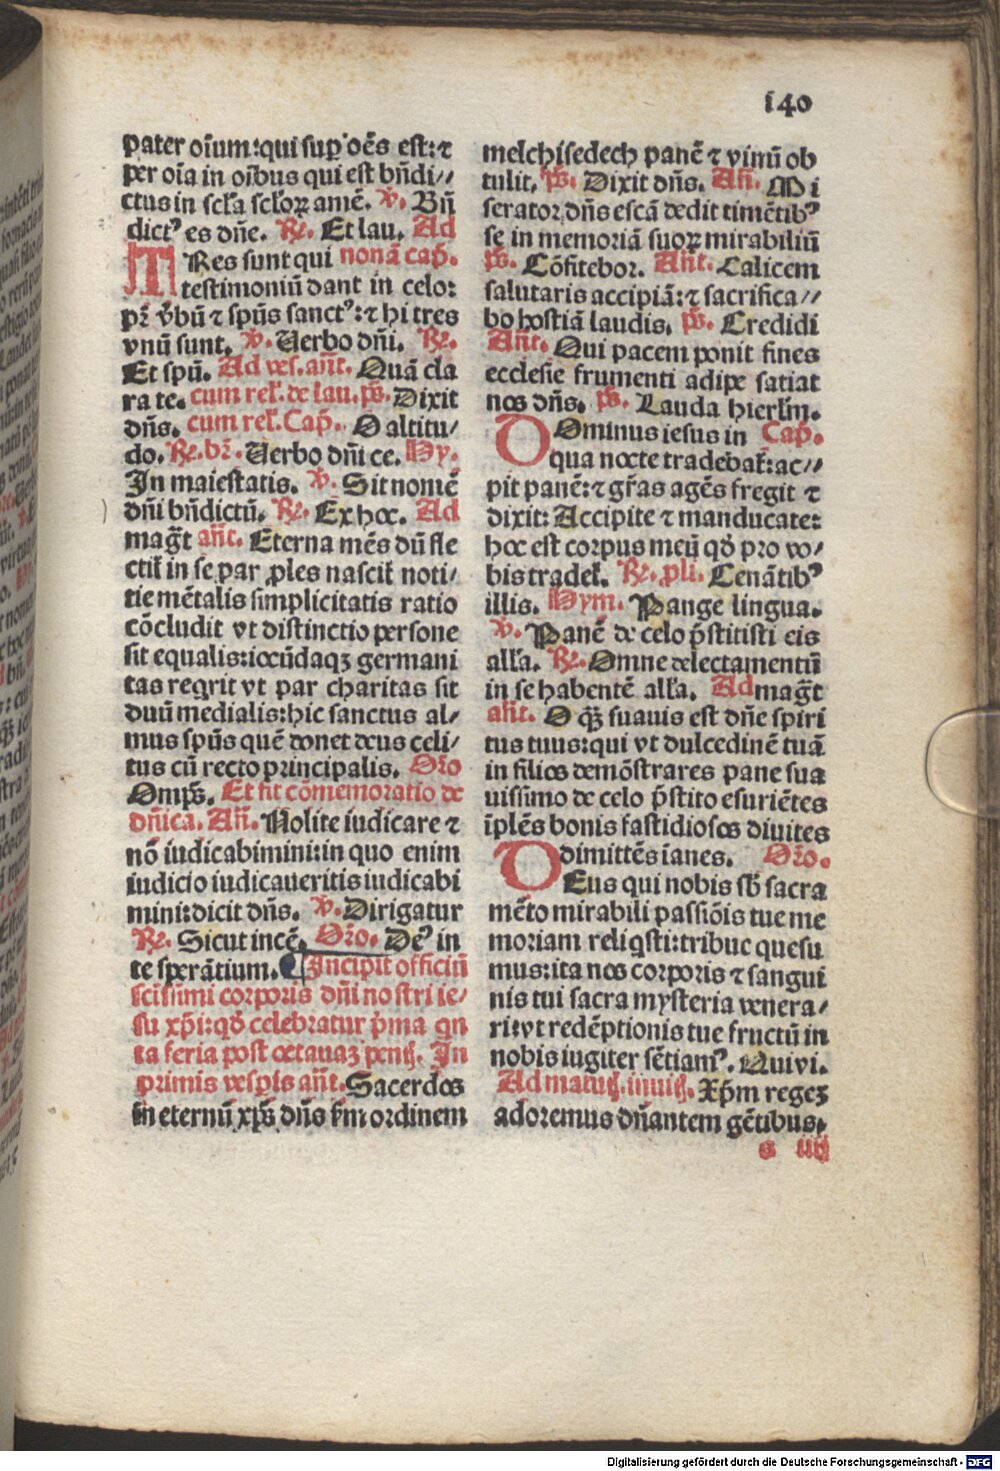 140
pater oīum: qui suꝑ oēs est: ⁊
per oīa in oībus qui est bn̄di//
ctus in scl̄a scl̄oꝝ amē. ℣. Bn̄
dictꝰ es dn̄e. ℟. Et lau. Ad
TRes sunt qui nonā cap̄.
testimoniū dant in celo:
pr̄ v̄bū ⁊ spūs sanctꝰ: ⁊ hi tres
vnū sunt. ℣. Uerbo dn̄i. ℟.
Et spū. Ad ves. an̄t. Quā cla
ra te. cum rel̄. de lau. ps̄. Dixit
dn̄s. cum rel̄. Cap̄. O altitu/
do. ℟. br̄. Uerbo dn̄i ce. Hy.
In maiestatis. ℣. Sit nomē
dn̄i bn̄dictū. ℟. Ex hoc. Ad
mag̅t an̄t. Eterna mēs dū fle
ctit̄ in se par ꝓles nascit̄ noti/
tie mētalis simplicitatis ratio
cōcludit vt distinctio persone
sit equalis: iocūdaqꝫ germani
tas regrit vt par charitas sit
duū medialis: hic sanctus al/
mus spūs quē donet deus celi/
tus cū recto principalis. Oro
Omps̄. Et fit cōmemoratio de
dn̄ica. An̄. Nolite iudicare ⁊
nō iudicabimini: in quo enim
iudicio iudicaueritis iudicabi
mini: dicit dn̄s. ℣. Dirigatur
℟. Sicut incē. Oro. Deꝰ in
te sperātium. Incipit officiū
scissimi corporis dn̄i nostri ie/
su xp̄i: qd̄ celebratur p̄ma qn
ta feria post octauaꝫ pent̄. In
primis vesꝑis an̄t. Sacerdos
in eternū xp̄s dn̄s s̄m ordinem
melchisedech panē ⁊ vinū ob
tulit. ps̄. Dixit dn̄s. An̄. Mi
serator dn̄s escā dedit timētibꝰ
se in memoriā suoꝝ mirabiliū
ps̄. Cōfitebor. An̄t. Calicem
salutaris accipiā: ⁊ sacrifica//
bo hostiā laudis. ps̄. Credidi
An̄t. Qui pacem ponit fines
ecclesie frumenti adipe satiat
nos dn̄s. ps̄. Lauda hierl̄m.
DOminus iesus in Cap̄.
qua nocte tradebat̄: ac//
pit panē: ⁊ gr̄as agēs fregit ⁊
dixit: Accipite ⁊ manducate:
hoc est corpus meū qd̄ pro vo/
bis tradet̄. ℟. ꝓli. Cenātibꝰ
illis. Hym. Pange lingua.
℣. Panē de celo p̄stitisti eis
all̄a. ℟. Omne delectamentū
in se habentē all̄a. Ad mag̅t
an̄t. O qꝫ suauis est dn̄e spiri
tus tuus: qui vt dulcedinē tuā
in filios demōstrares pane sua
uissimo de celo p̄stito esuriētes
īplēs bonis fastidiosos diuites
dimittēs ianes. Oro.
DEus qui nobis sb̄ sacra
mēto mirabili passiōis tue me
moriam reliqsti: tribue quesu
mus: ita nos corporis ⁊ sangui
nis tui sacra mysteria venera/
ri: vt redēptionis tue fructū in
nobis iugiter sētiamꝰ. Qui vi.
Ad matut̄. inuit̄. Xp̄m regeꝫ
adoremus dn̄antem gētibus.
s iiij
Digitalisierung gefördert durch die Deutsche Forschungsgemeinschaft - DFG